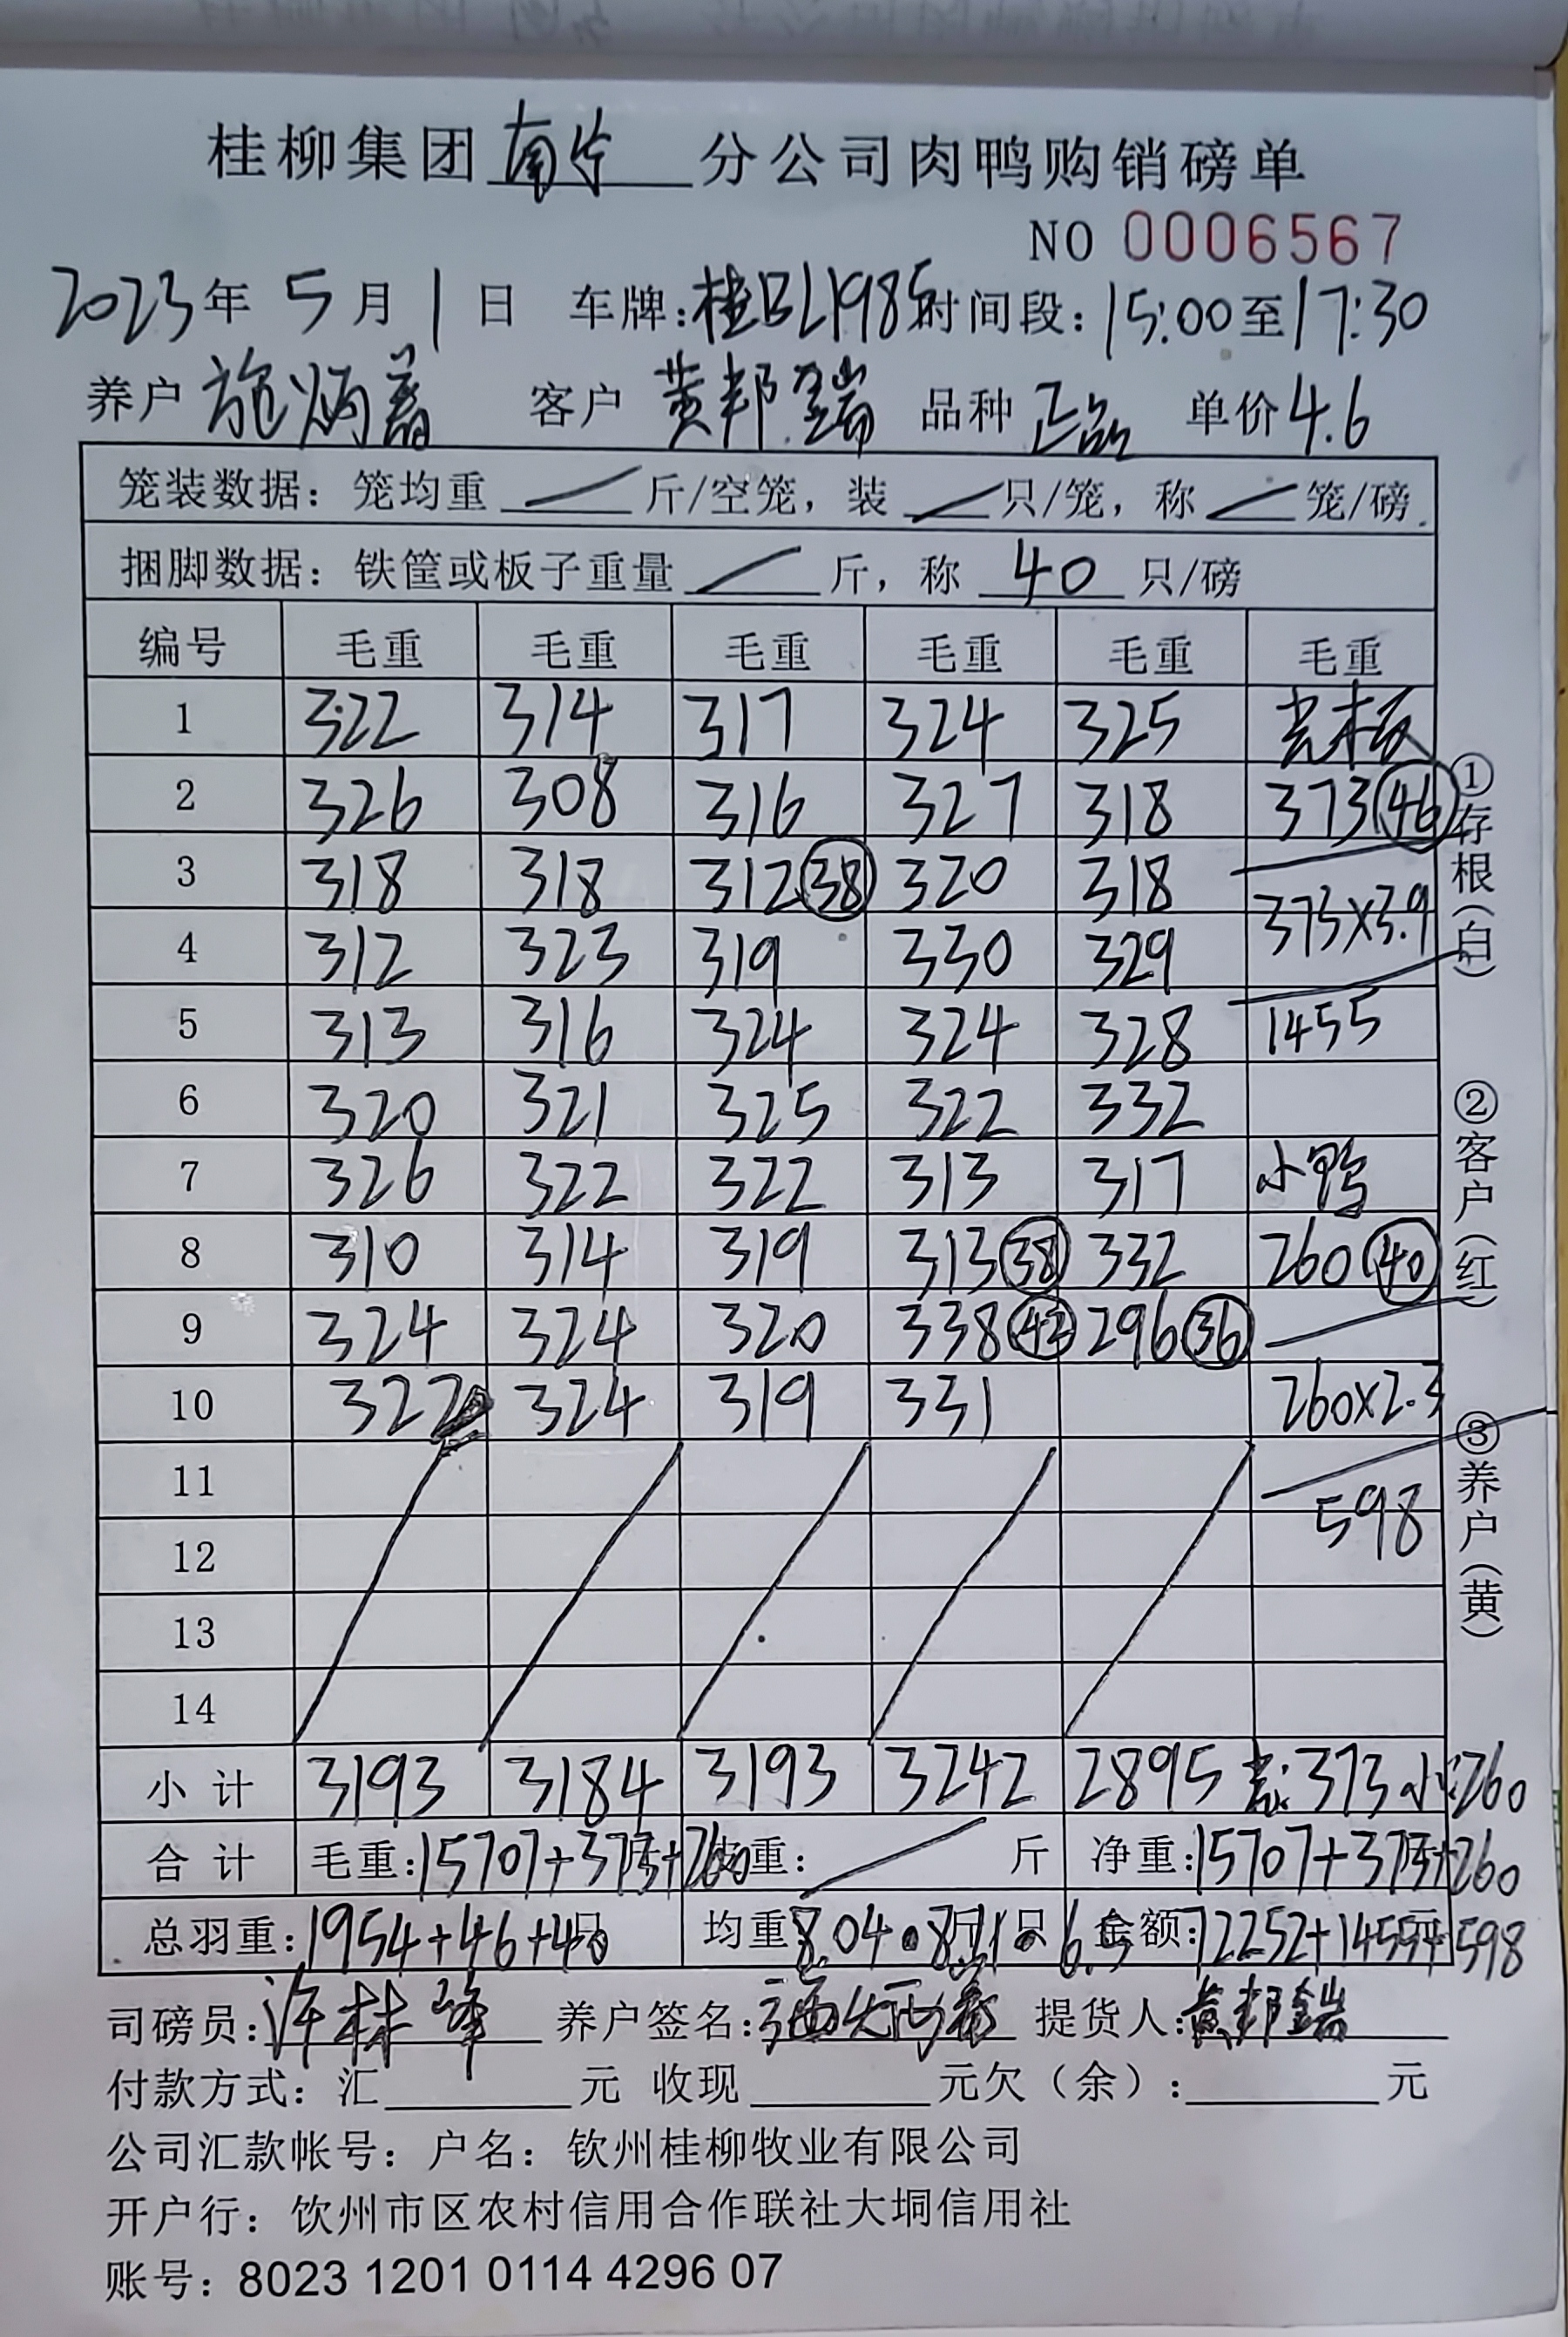 桂柳集团南宁分公司肉鸭购销磅单
NO 0006567
2023年5月1日 车牌:桂 L1985 时间段:15:00至17:30
养户 施炳 客户 黄邦瑞 品种 正品 单价4.6
笼装数据:笼均重 / 斤/空笼,装 / 只/笼,称 / 笼/磅.
捆脚数据:铁筐或板子重量 / 斤,称 40 只/磅
编号 毛重 毛重 毛重 毛重 毛重 毛重
1 322 314 317 324 325 光板
2 326 308 316 327 318 373 46
3 318 318 312 38 320 318
4 312 323 319 330 329 373×3.9
5 313 316 324 324 328 1455
6 320 321 325 322 332
7 326 322 322 313 317 小鸭
8 310 314 319 313 38 332 260 40
9 324 324 320 338 42 296 36
10 322 324 319 331 260×2.3
11
12 598
13
14
小计 3193 3184 3193 3242 2895 光:373 小:260
合计 毛重:15707+373+260 皮重: / 斤 净重:15707+373+260
总羽重:1954+46+40只 均重8.04.8.1.6.5斤/只 金额:72252+1455+598元
司磅员:许林峰 养户签名:施炳 提货人:黄邦瑞
付款方式:汇 元 收现 元欠(余): 元
公司汇款帐号:户名:钦州桂柳牧业有限公司
开户行:钦州市区农村信用合作联社大垌信用社
账号:8023 1201 0114 4296 07
①存根(白)
②客户(红)
③养户(黄)